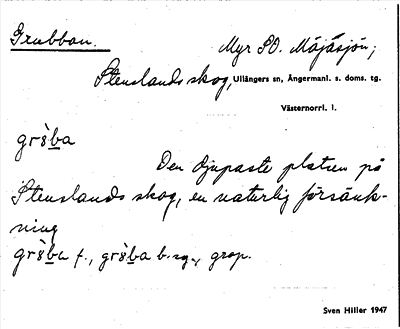 Grubban. Myr SO. Mäjasjön;
Stenslands skog, Ullångers sn, Ångermanl. s. doms. tg.
Västernorrl. l.
grὸ̀ba
Den djupaste platsen på
Stenslands skog, en naturlig försänk-
ning
grὸ̀ba f., grὸ̀ba b.sg., grop.
Sven Hiller 1947